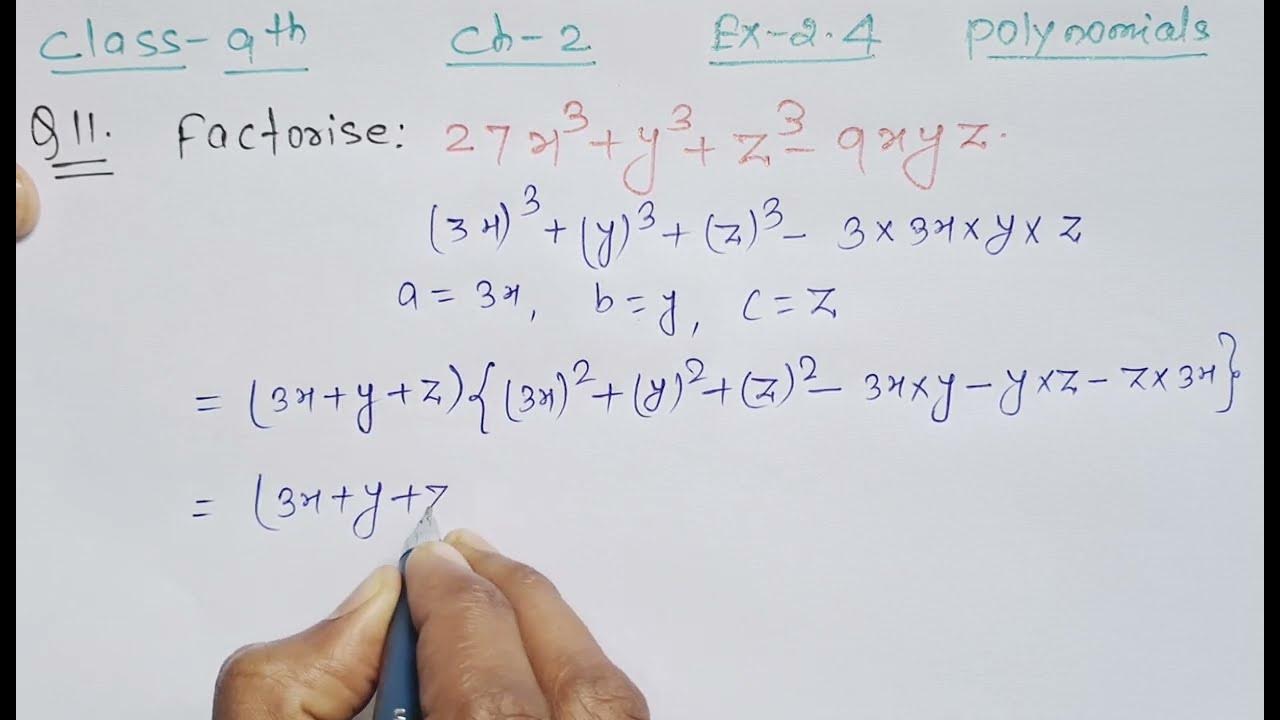 Class-9th Ch-2 Ex-2.4 Polynomials
Q11. Factorise: 27x³+y³+z³-9xyz.
(3x)³+(y)³+(z)³- 3×3x×y×z
a=3x, b=y, c=z
= (3x+y+z){(3x)²+(y)²+(z)²- 3x×y-y×z-z×3x}
= (3x+y+z